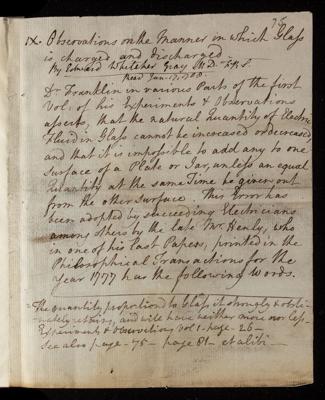 75
IX. Observations on the Manner in which Glass
is charged and discharged.
By Edward Whitaker Gray M.D. F.R.S.
Read Jan. 17, 1788
Dr. Franklin in various Parts of the first
Vol: of his Experiments & Observations
asserts, that the natural Quantity of Electric
Fluid in Glass cannot be increased or decreased
and that it is impossible to add any to one
Surface of a Plate or Jar, unless an equal
Quantity at the same Time be given out
from the other Surface. This Error has
been adopted by succeeding Electricians
among others by the late Mr. Henly, who
in one of his last Papers, printed in the
Philosophical Transactions for the
Year 1777 has the following Words.
The quantity proportioned to Glass it strongly & obsti-
nately retains, and will have neither more nor less
Experiments & Observations Vol. 1. page 26 —
See also page — 75 — page 81 — et alibi —